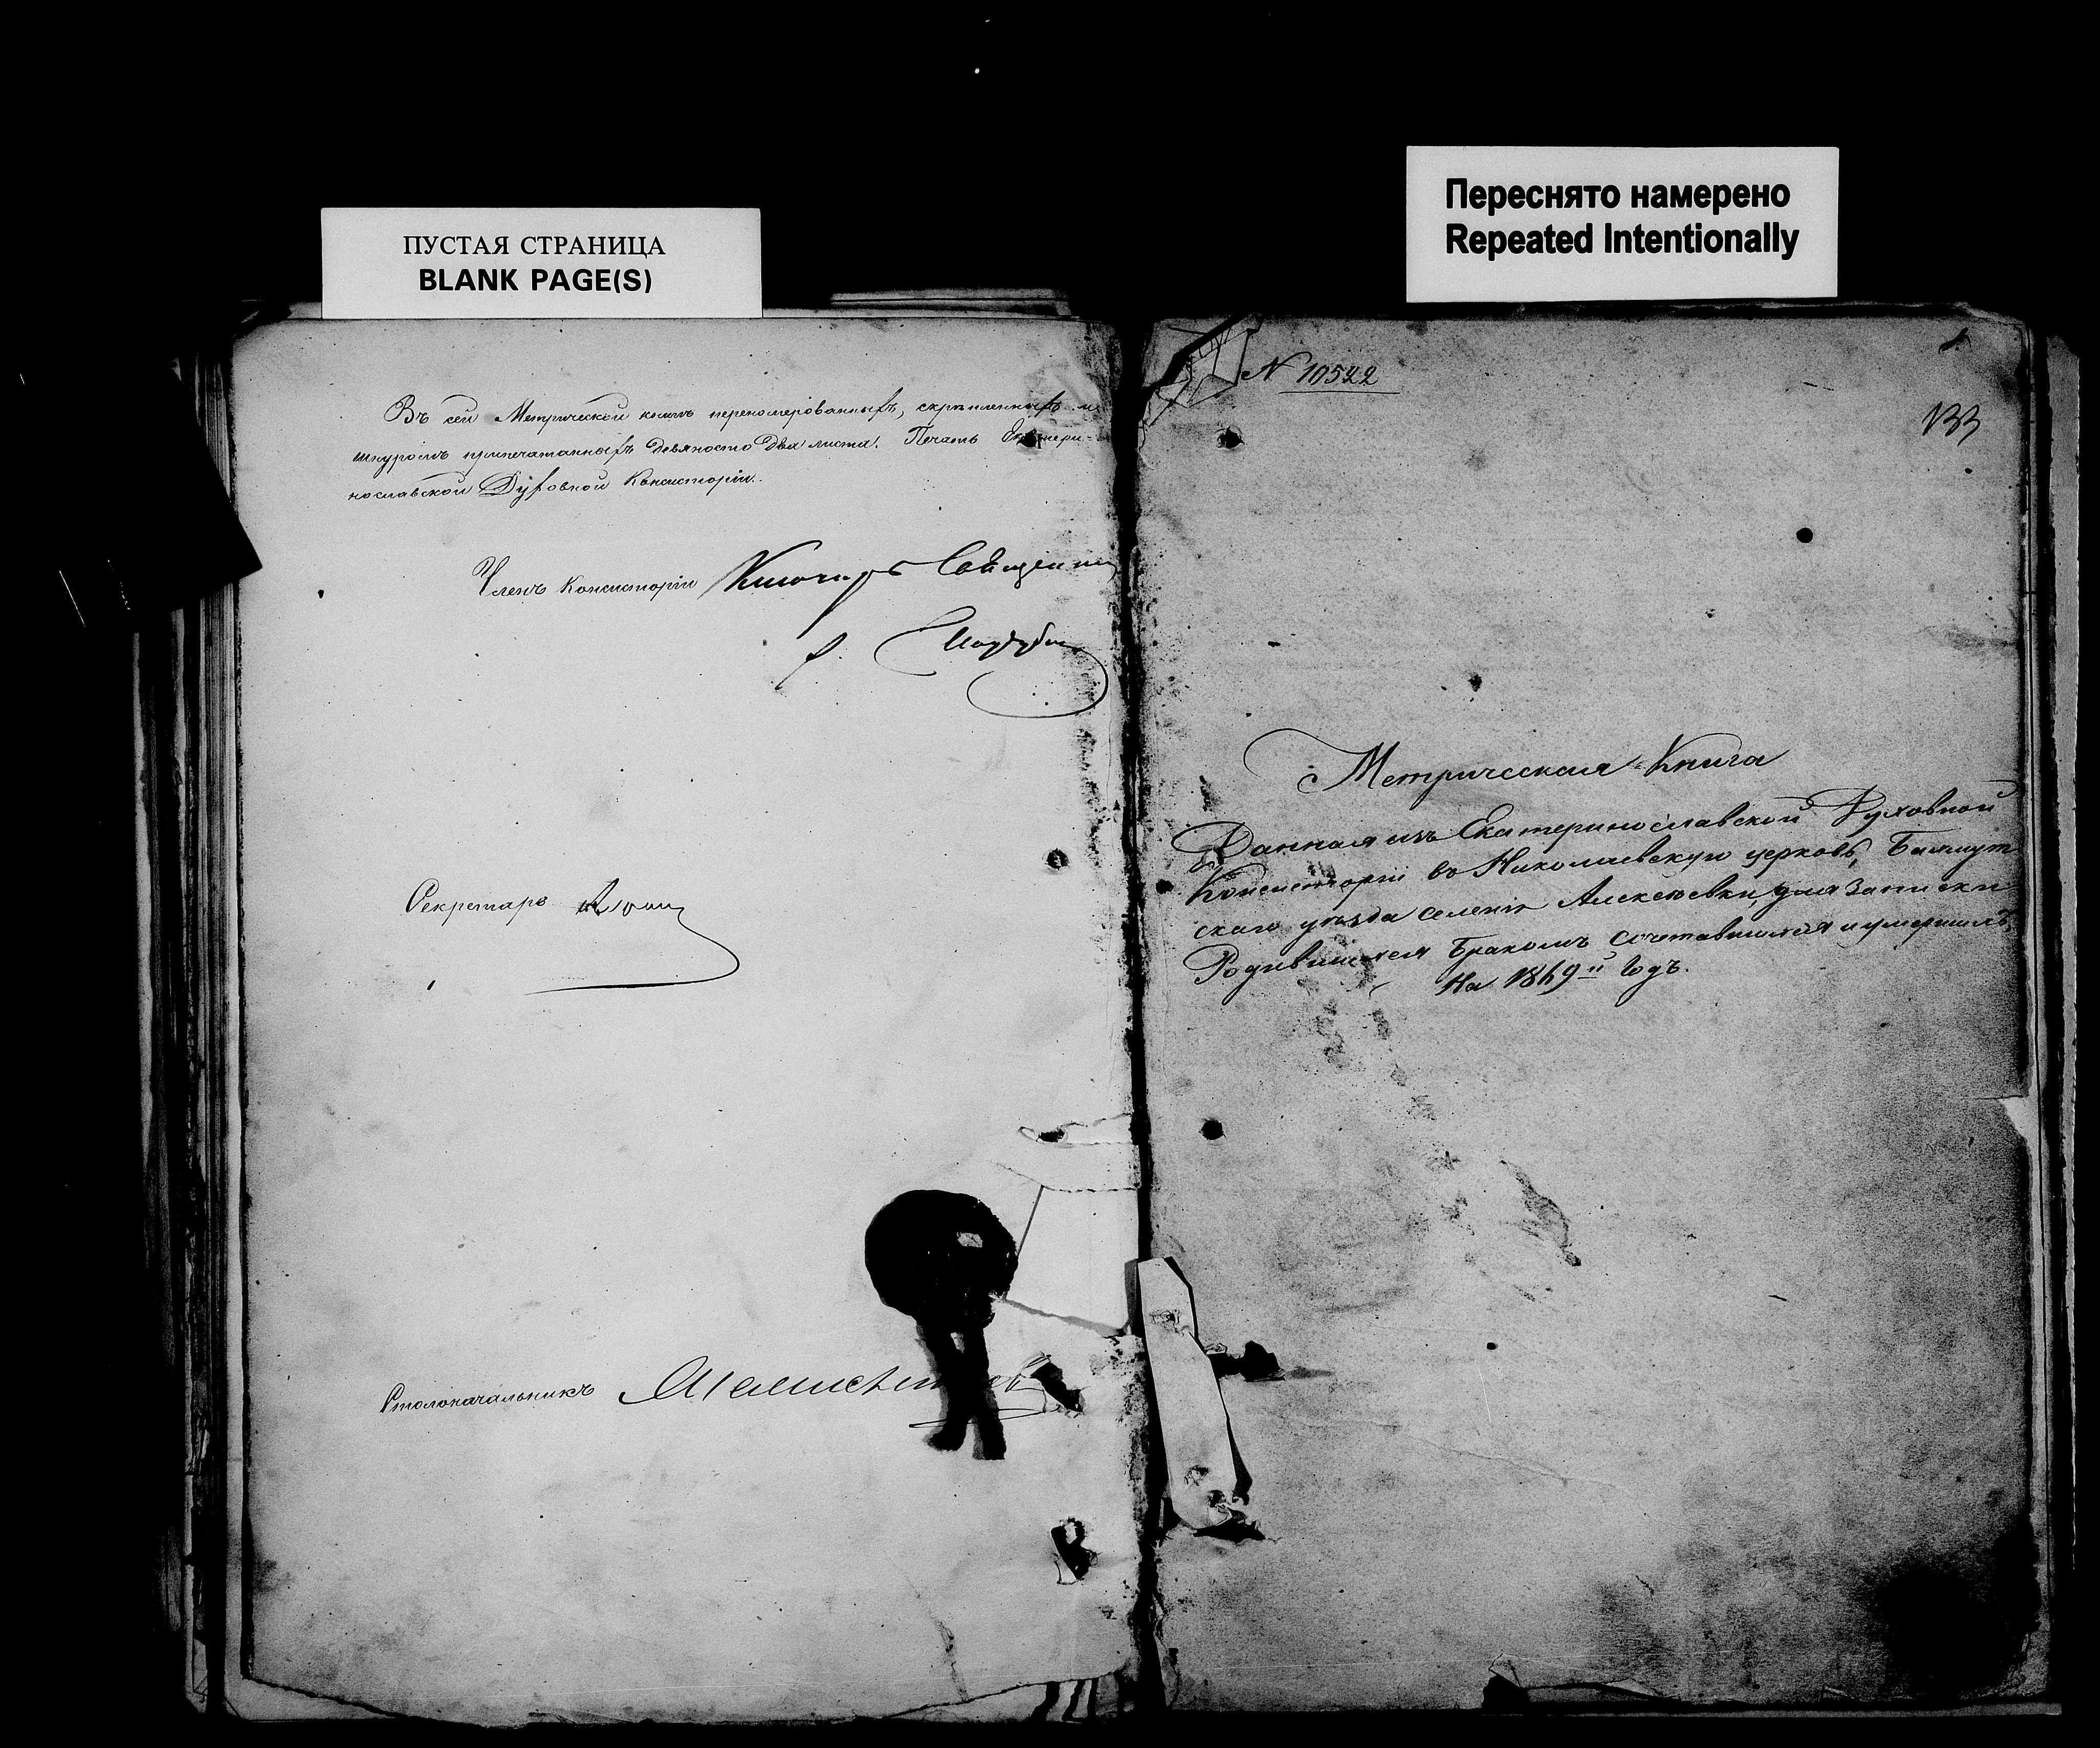 ПУСТАЯ СТРАНИЦА
BLANK PAGE(S)
Въ сей Метрической книгѣ перономерованныхъ, скрѣпленныхъ и
шнуромъ припечатанныхъ девяносто два листа. Печать Екатери-
нославской Духовной Консисторіи.
Членъ Консисторіи Ключарь Священник
Секретарь
Столоначальникъ
Переснято намерено
Repeated Intentionally
1.
N 10522
133
Метрическая Книга
Данная изъ Екатеринославской Духовной
Консисторіи во Николаевскую церковь, Бахмут
скаго уѣзда селенія Алексѣевки, для записки
Родившихся Бракомъ сочетавшихся и умершихъ,
На 1869й Годъ.